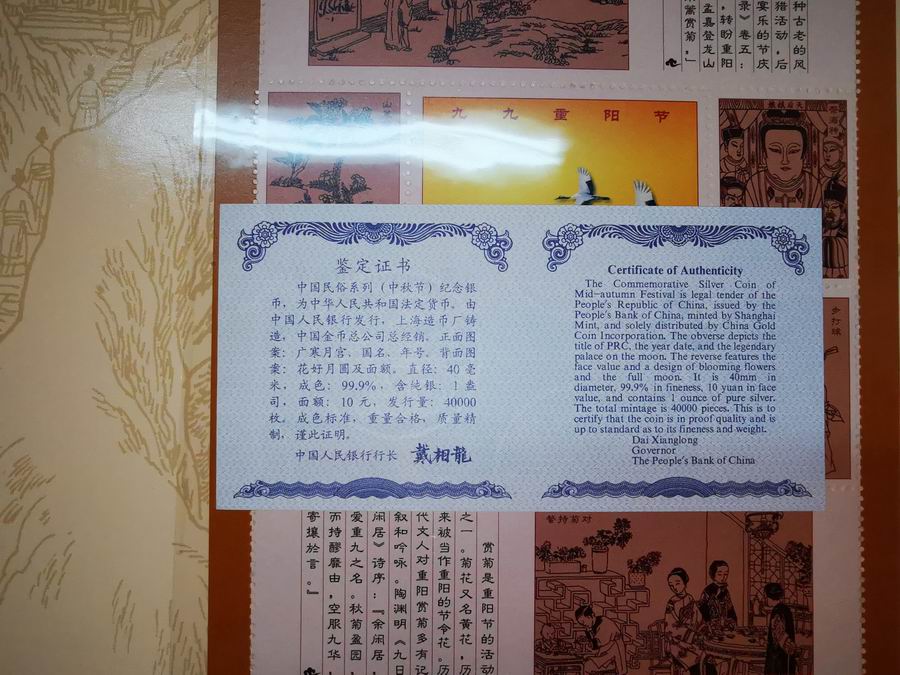 种古老的风
猎活动，后
宴乐的节庆
录》卷五：
，转盼重阳
孟嘉登龙山
蒿赏菊，」
九九重阳节
鉴定证书
中国民俗系列（中秋节）纪念银
币，为中华人民共和国法定货币。由
中国人民银行发行，上海造币厂铸
造，中国金币总公司总经销。正面图
案：广寒月宫、国名、年号。背面图
案：花好月圆及面额。直径：40毫
米，成色：99.9%，含纯银：1盎
司，面额：10元，发行量：40000
枚。成色标准，重量合格，质量精
制，谨此证明。
中国人民银行行长 戴相龍
Certificate of Authenticity
The Commemorative Silver Coin of
Mid-autumn Festival is legal tender of the
People's Republic of China, issued by the
People's Bank of China, minted by Shanghai
Mint, and solely distributed by China Gold
Coin Incorporation. The obverse depicts the
title of PRC, the year date, and the legendary
palace on the moon. The reverse features the
face value and a design of blooming flowers
and the full moon. It is 40mm in
diameter, 99.9% in fineness, 10 yuan in face
value, and contains 1 ounce of pure silver.
The total mintage is 40000 pieces. This is to
certify that the coin is in proof quality and is
up to standard as to its fineness and weight.
Dai Xianglong
Governor
The People's Bank of China
步打球
赏菊是重阳节的活动
之一。菊花又名黄花，历
来被当作重阳的节令花。历
代文人对重阳赏菊多有记
叙和吟咏。陶渊明《九日
闲居》诗序：『余闲居，
爱重九之名。秋菊盈园，
而持醪靡由，空服九华，
寄壤於言。』